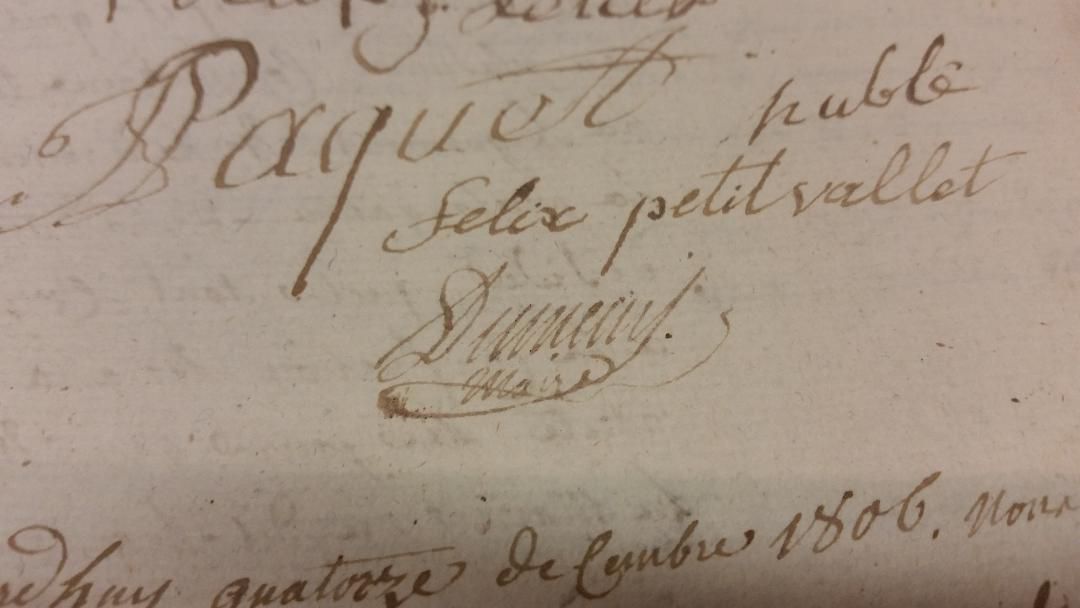 Paquet publé
felix petit vallet
maire
quatorze decembre 1806. nous